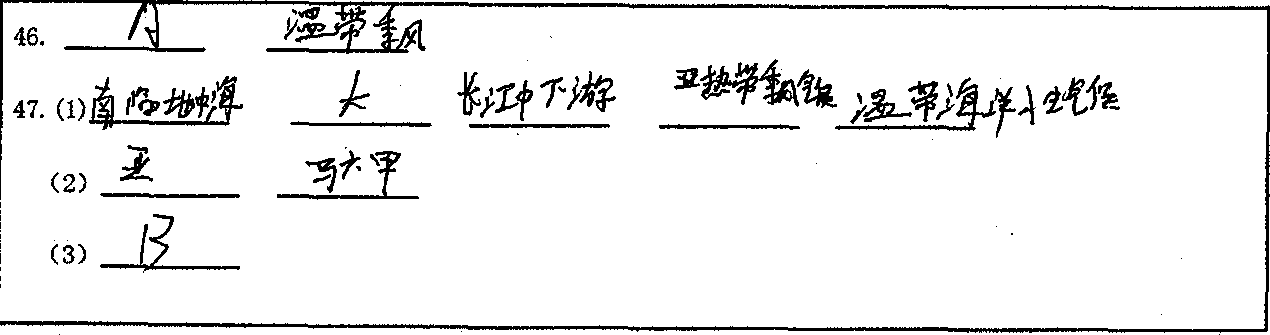 46. A 温带季风
47. (1) 大 长江中下游 亚热带季风气候 温带海洋性气候
(2) 亚 马六甲
(3) B